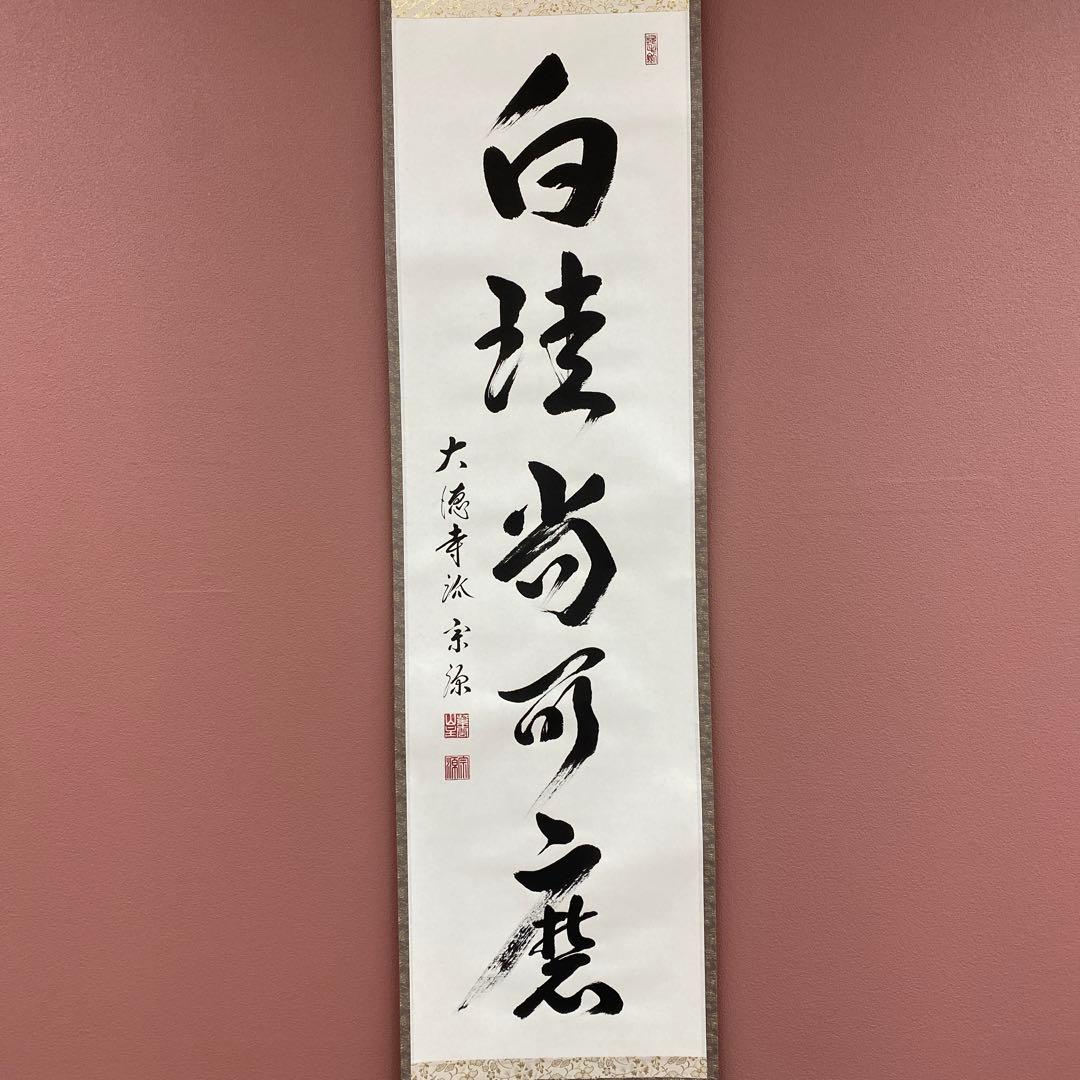 白珪尚可磨
大徳寺派 宗源
宗源